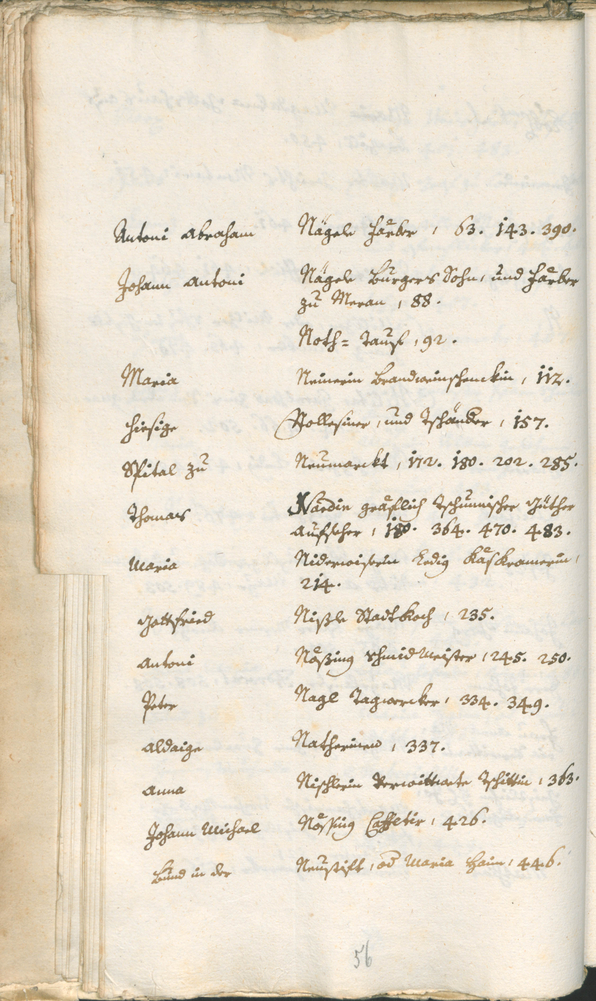 Antoni Abraham Nägele Färber, 63. 143. 390.
Johann Antoni Nägele Burgers Sohn, und Färber
zu Meran, 88.
Noth=Tauf, 92.
Maria Neinerin Brandweinschenckin, 112.
hiesige Nollesiner, und Tschänder, 157.
Spital zu Neumarckt, 172. 180. 202. 285.
Thomas Nardin gräflich Güther
Aufseher, 180. 364. 470. 483.
Maria Ledig Käskramerin,
214.
Gottfried Nißle Stadt Koch, 235.
Antoni Nössing Schmid Meister, 245. 250.
Peter Nagl Tagwercker, 334. 349.
337.
Anna Nischlerin Verwittwete Tschittin, 363.
Johann Michael Nössing Caffetir, 426.
Bund in der Neustift, od Maria Haim, 446.
56